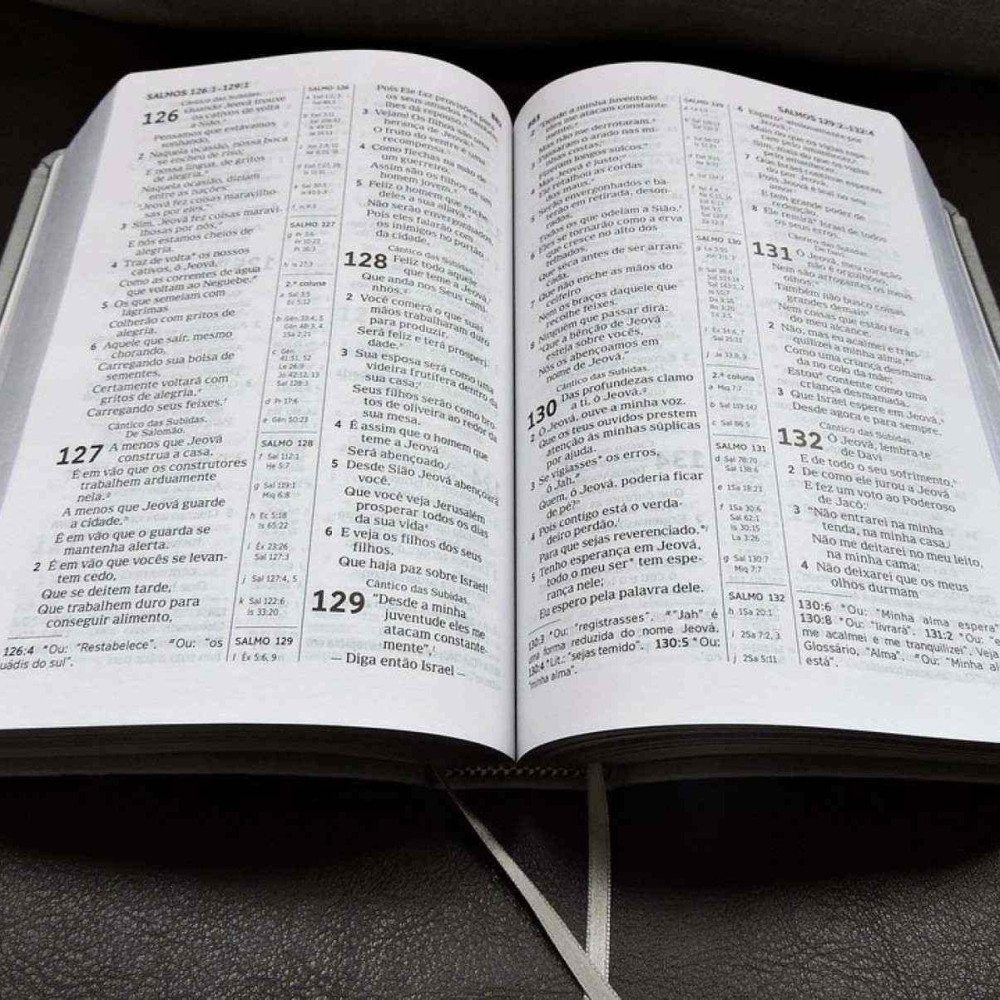 SALMOS 126:1–129:1
126 Cântico das Subidas.
Quando Jeová trouxe
os cativos de volta
a Sião,
Pensamos que estávamos
sonhando.
2 Naquela ocasião, nossa boca
se encheu de riso,
E nossa língua, de gritos
de alegria.
Naquela ocasião, diziam
entre as nações:
“Jeová fez coisas maravilho-
sas por eles.”
3 Sim, Jeová fez coisas maravi-
lhosas por nós,
E nós estamos cheios de
alegria.
4 Traz de volta* os nossos
cativos, ó Jeová,
Como as correntes de água
que voltam ao Neguebe.
5 Os que semeiam com
lágrimas
Colherão com gritos de
alegria.
6 Aquele que sair, mesmo
chorando,
Carregando sua bolsa de
sementes,
Certamente voltará com
gritos de alegria,
Carregando seus feixes.
Cântico das Subidas.
De Salomão.
127 A menos que Jeová
construa a casa,
É em vão que os construtores
trabalham arduamente
nela.
A menos que Jeová guarde
a cidade,
É em vão que o guarda se
mantenha alerta.
2 É em vão que vocês se levan-
tem cedo,
Que se deitem tarde,
Que trabalhem duro para
conseguir alimento,
126:4 *Ou: “Restabelece”. Ou: “os
uádis do sul”.
SALMO 126
SALMO 127
2.ª coluna
a Sal 3:5
Ez 5:12
c Gên
41:51, 52
Le 26:9
Jó 42:12, 13
Sal 128:3
d Pr 17:6
e Gên 50:23
SALMO 128
f Sal 112:1
He 5:7
g Sal 119:1
Miq 6:8
h Ec 5:18
Is 65:22
i Êx 23:26
Sal 127:3
j Sal 127:4, 5
k Sal 122:6
Is 33:20
SALMO 129
l Êx 5:6, 9
Pois Ele faz provisões para
os seus amados e ainda
lhes dá repouso.
3 Vejam! Os filhos são uma
herança de Jeová;
O fruto do ventre é uma
recompensa.
4 Como flechas na mão de
um guerreiro,
Assim são os filhos de um
homem jovem.
5 Feliz o homem que enche
deles a sua aljava.
Não serão envergonhados,
Pois eles falarão com
os inimigos no portão
da cidade.
Cântico das Subidas.
128 Feliz todo aquele
que teme a Jeová,
Que anda nos Seus cami-
nhos.
2 Você comerá o que suas
mãos trabalharam duro
para produzir.
Será feliz e terá prosperi-
dade.
3 Sua esposa será como uma
videira frutífera dentro da
sua casa;
Seus filhos serão como bro-
tos de oliveira ao redor da
sua mesa.
4 É assim que o homem que
teme a Jeová
Será abençoado.
5 Desde Sião Jeová abençoará
você.
Que você veja Jerusalém
prosperar todos os dias
da sua vida
6 E veja os filhos dos seus
filhos.
Que haja paz sobre Israel!
Cântico das Subidas.
129 “Desde a minha
juventude eles me
atacam constante-
mente”,
— Diga então Israel —
SALMOS 129:2–132:4
2 “Desde a minha juventude
eles me atacam constante-
mente,
Mas não me derrotaram.
3 Passaram o arado nas mi-
nhas costas;
Fizeram longos sulcos.”
4 Mas Jeová é justo;
Ele retalhou as cordas
dos maus.
5 Serão envergonhados e ba-
terão em retirada, deson-
rados,
Todos os que odeiam a Sião.
6 Eles se tornarão como a erva
que cresce no alto dos
telhados,
Que seca antes de ser arran-
cada,
7 Que não enche as mãos do
ceifeiro
Nem os braços daquele que
recolhe feixes.
8 Ninguém que passar dirá:
“Que a bênção de Jeová
esteja sobre vocês.
Nós os abençoamos em
nome de Jeová.”
Cântico das Subidas.
130 Das profundezas clamo
a ti, ó Jeová.
2 Ó Jeová, ouve a minha voz.
Que os teus ouvidos prestem
atenção às minhas súplicas
por ajuda.
3 Se vigiasses* os erros,
ó Jah,
Quem, ó Jeová, poderia ficar
de pé?
4 Pois contigo está o verda-
deiro perdão,
Para que sejas reverenciado.
5 Tenho esperança em Jeová,
todo o meu ser* tem espe-
rança nele;
Eu espero pela palavra dele.
130:3 *Ou: “registrasses”. “Jah” é
uma forma reduzida do nome Jeová.
130:4 *Lit.: “sejas temido”. 130:5 *Ou:
“minha alma”.
SALMO 129
SALMO 130
2.ª coluna
a Miq 7:7
SALMO 131
d Sal 78:70
Sal 138:6
e 1Sa 18:23
f 1Sa 30:6
Sal 62:1
Is 30:15
La 3:26
g Sal 130:7
Miq 7:7
SALMO 132
h 1Sa 20:1
i 2Sa 7:2, 3
j 2Sa 5:11
6 Espero* ansiosamente por
Jeová,
Mais do que os vigias espe-
ram pelo amanhecer,
8 Ele remirá Israel de todos
os seus erros.
Cântico das Subidas.
De Davi.
131 Ó Jeová, meu coração
não é orgulhoso,
Nem são arrogantes os meus
olhos;
Também não busco coisas
grandes demais
Nem coisas que estão fora
do meu alcance.
2 Não, mas eu acalmei e tran-
quilizei a minha alma,
Como uma criança desmama-
da no colo da mãe;
Estou* contente como uma
criança desmamada.
3 Que Israel espere em Jeová,
Desde agora e para sempre.
Cântico das Subidas.
132 Ó Jeová, lembra-te
de Davi
E de todo o seu sofrimento,
2 De como ele jurou a Jeová
E fez um voto ao Poderoso
de Jacó:
3 “Não entrarei na minha
tenda, na minha casa,
Não me deitarei no meu leito,
na minha cama;
4 Não deixarei que os meus
olhos durmam
130:6 *Ou: “Minha alma espera”.
130:8 *Ou: “livrará”. 131:2 *Ou: “
me acalmei e me tranquilizei”. Veja
Glossário, “Alma”. Ou: “Minha al
está”.